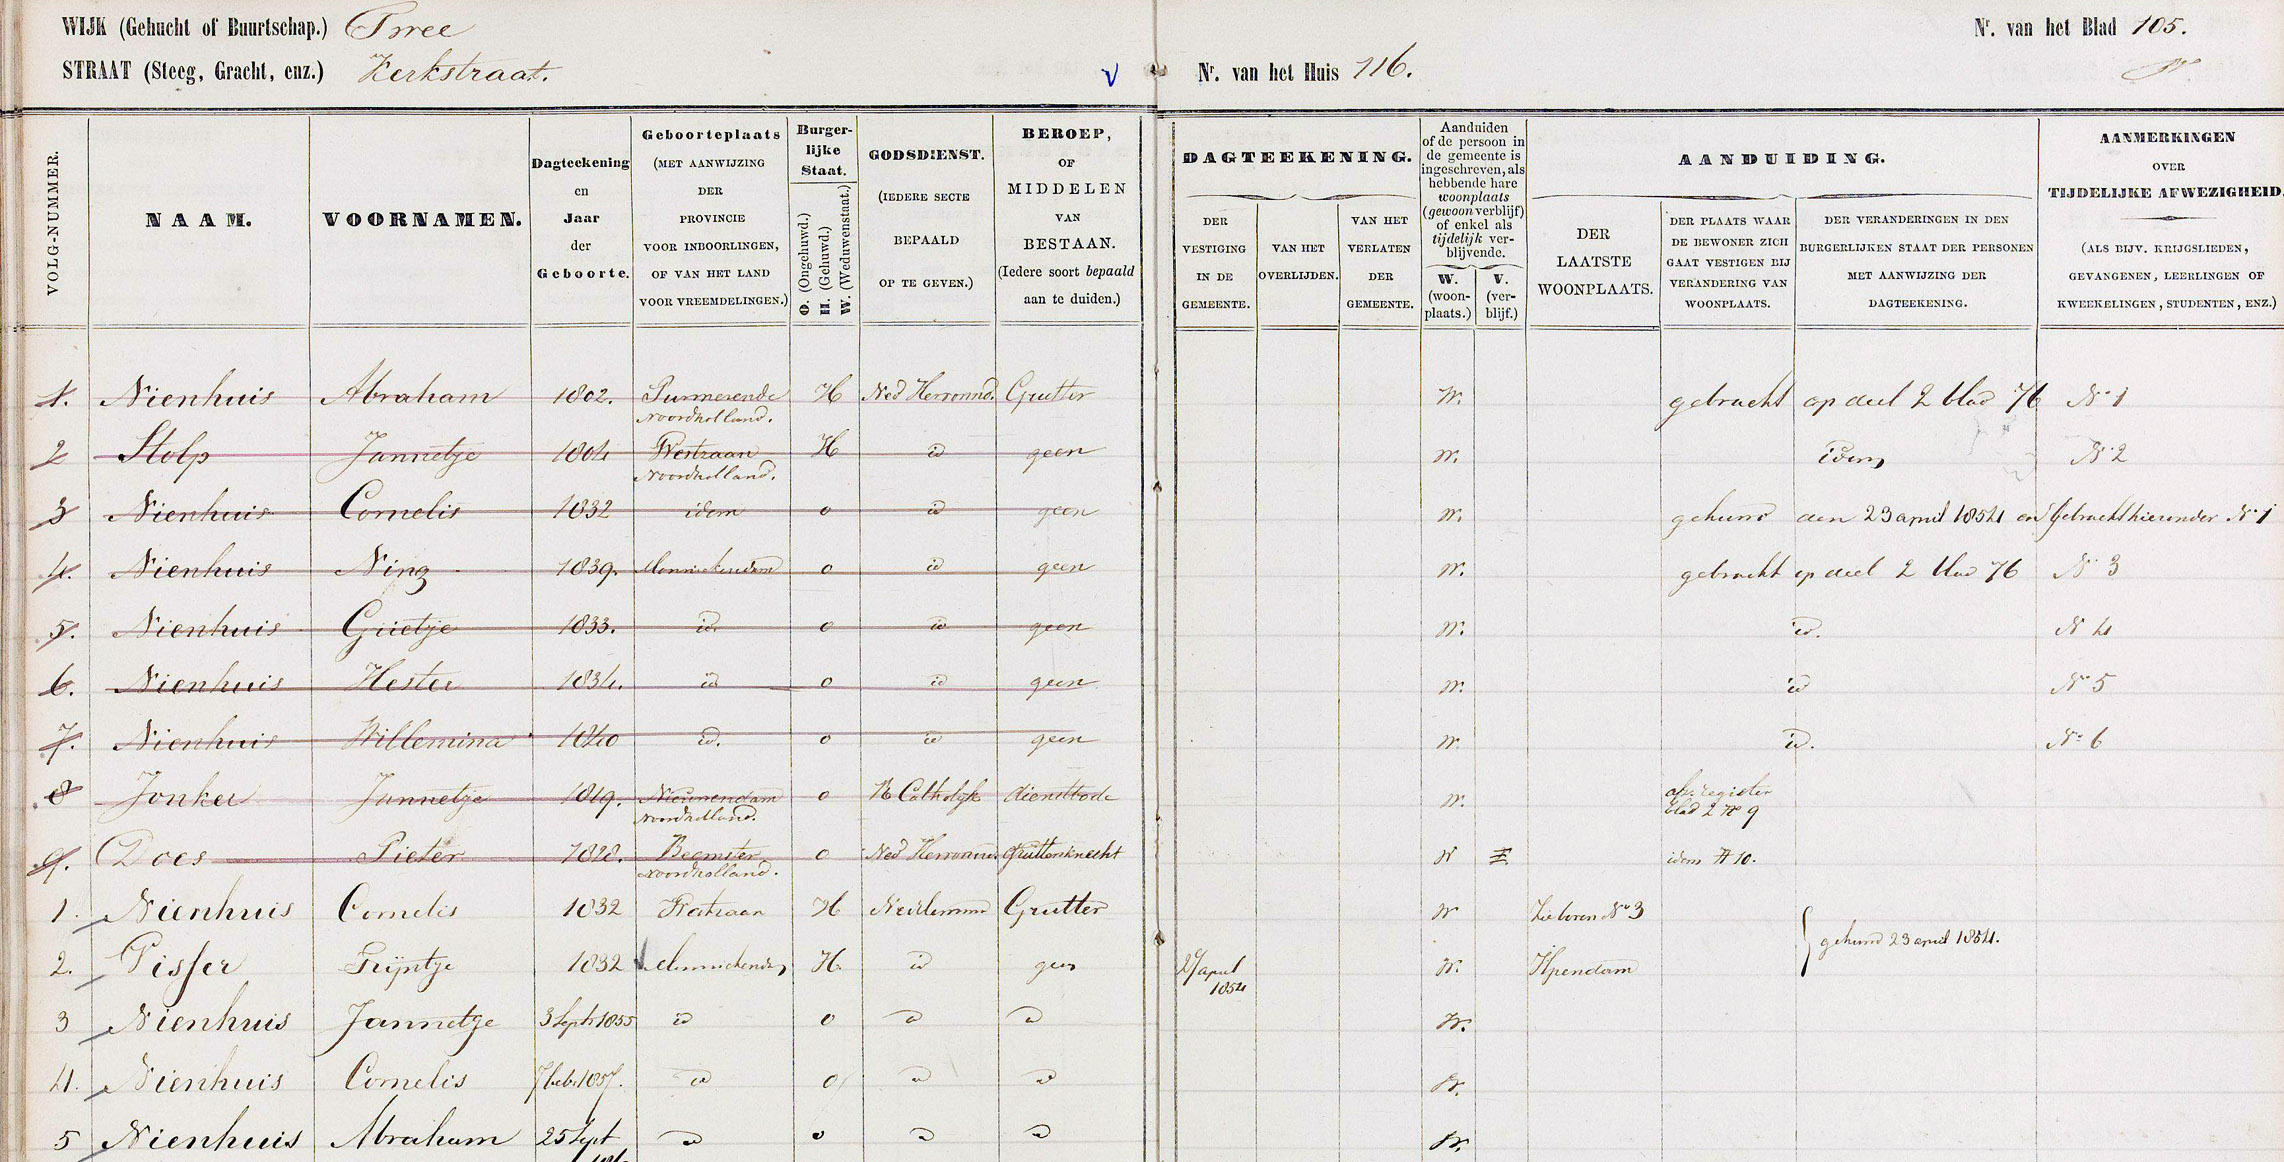 WIJK (Gehucht of Buurtschap.) Twee
STRAAT (Steeg, Gracht, enz.) Kerkstraat.
Nr. van het Huis 116.
Nr. van het Blad 105.
VOLG-NUMMER.
NAAM.
VOORNAMEN.
Dagteekening
en
Jaar
der
Geboorte.
Geboorteplaats
(MET AANWIJZING
DER
PROVINCIE
VOOR INBOORLINGEN,
OF VAN HET LAND
VOOR VREEMDELINGEN.)
Burger-
lijke
Staat.
O. (Ongehuwd.)
H. (Gehuwd.)
W. (Weduwenstaat.)
GODSDIENST.
(IEDERE SECTE
BEPAALD
OP TE GEVEN.)
BEROEP,
OF
MIDDELEN
VAN
BESTAAN.
(Iedere soort bepaald
aan te duiden.)
DAGTEEKENING.
DER
VESTIGING
IN DE
GEMEENTE.
VAN HET
OVERLIJDEN.
VAN HET
VERLATEN
DER
GEMEENTE.
Aanduiden
of de persoon in
de gemeente is
ingeschreven, als
hebbende hare
woonplaats
(gewoon verblijf)
of enkel als
tijdelijk ver-
blijvende.
W.
(woon-
plaats.)
V.
(ver-
blijf.)
AANDUIDING.
DER
LAATSTE
WOONPLAATS.
DER PLAATS WAAR
DE BEWONER ZICH
GAAT VESTIGEN BIJ
VERANDERING VAN
WOONPLAATS.
DER VERANDERINGEN IN DEN
BURGERLIJKEN STAAT DER PERSONEN
MET AANWIJZING DER
DAGTEEKENING.
AANMERKINGEN
OVER
TIJDELIJKE AFWEZIGHEID.
(ALS BIJV. KRIJGSLIEDEN,
GEVANGENEN, LEERLINGEN OF
KWEEKELINGEN, STUDENTEN, ENZ.)
1. Nienhuis Abraham 1802. Purmerende H Ned Hervormd. Grutter W. gebracht op deel 2 blad 76 No 1
Noordholland.
2 Stolp Jannetje 1804 Westzaan H id geen W. idem No 2
Noordholland.
3 Nienhuis Cornelis 1832 idem o id geen W. gehuwd den 23 april 1854 en Gebracht hieronder No 1
4. Nienhuis 1839. Monnickendam o id geen W. gebracht op deel 2 blad 76 No 3
5. Nienhuis Grietje 1833. id. o id geen W. id. N 4
6. Nienhuis Hester 1834. id o id geen W. id No 5
7. Nienhuis Willemina 1840 id. o id geen W. id. No 6
8 Jonker Jannetje 1819. Nieuwendam o R Catholijk dienstbode W. afz. register
Noordholland. blad 2 No 9
9. Does Pieter 1828. Beemster o Ned Hervormd. Gruttersknecht W idem No 10.
Noordholland.
1. Nienhuis Cornelis 1832 Westzaan H Ned Hervormd Grutter W Zie boven No 3
2. Visser Trijntje 1832 Monnickendam H. id geen 27 april W. Ilpendam gehuwd 23 april 1854.
1854
3 Nienhuis Jannetje 3 Sept 1855 id o id id W.
4. Nienhuis Cornelis 7 Febr 1857. id o id id W.
5 Nienhuis Abraham 25 Sept id o id id W.